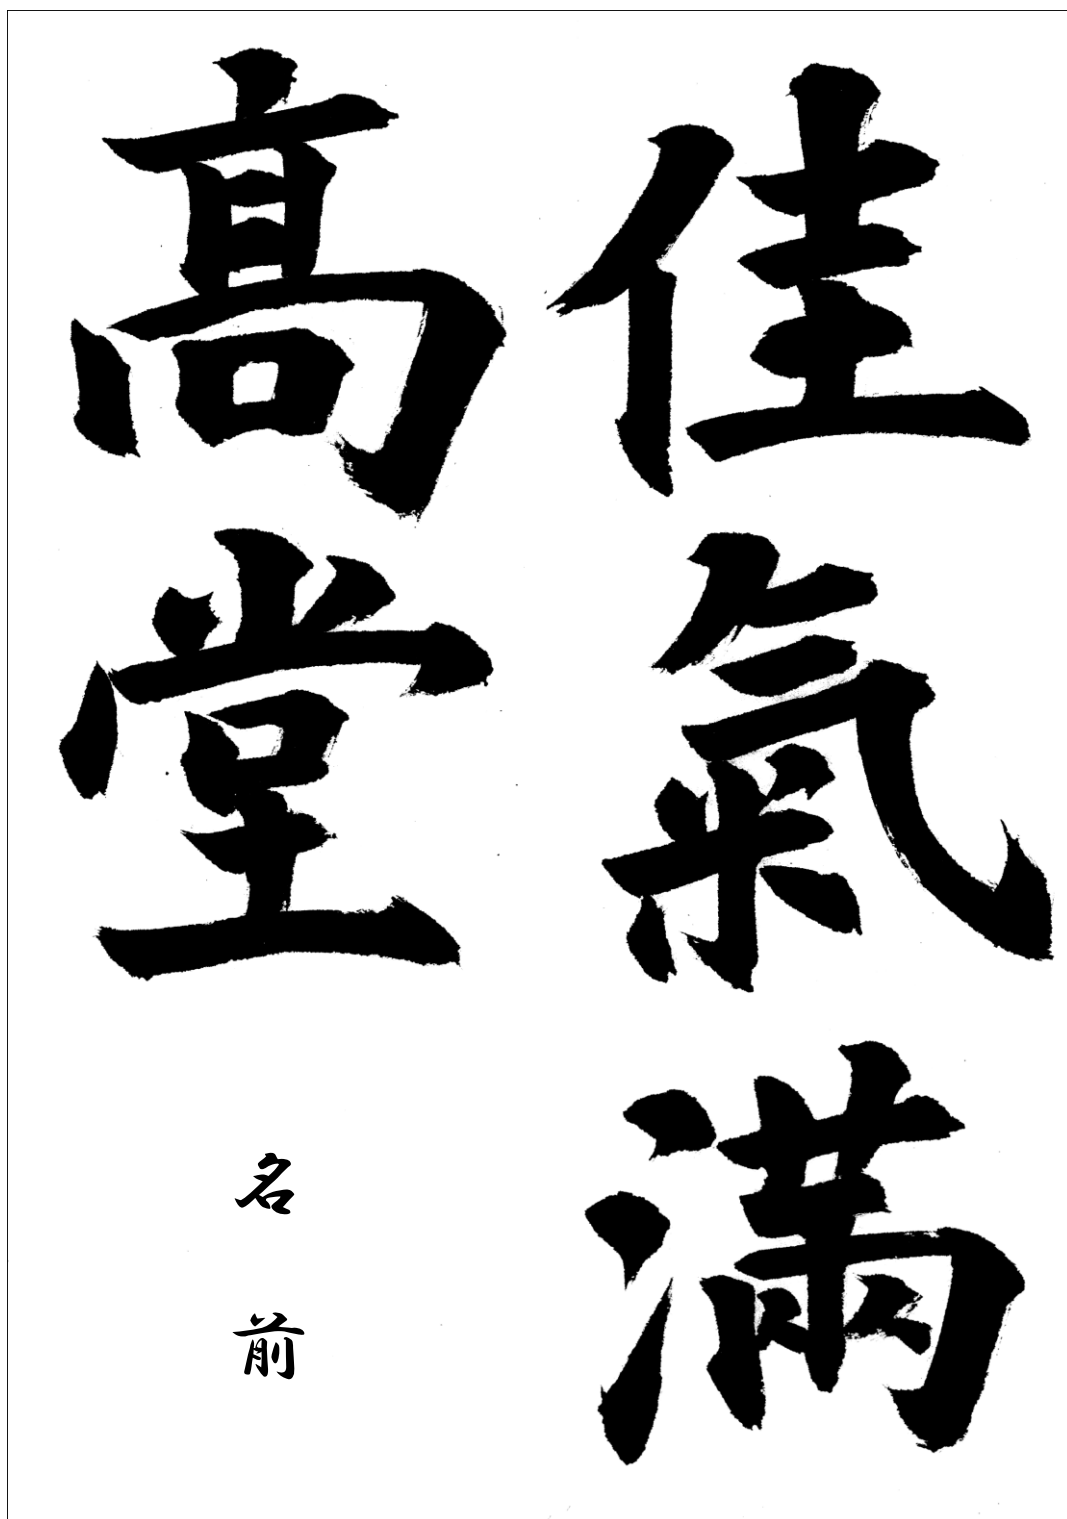 佳氣満
高堂
名前